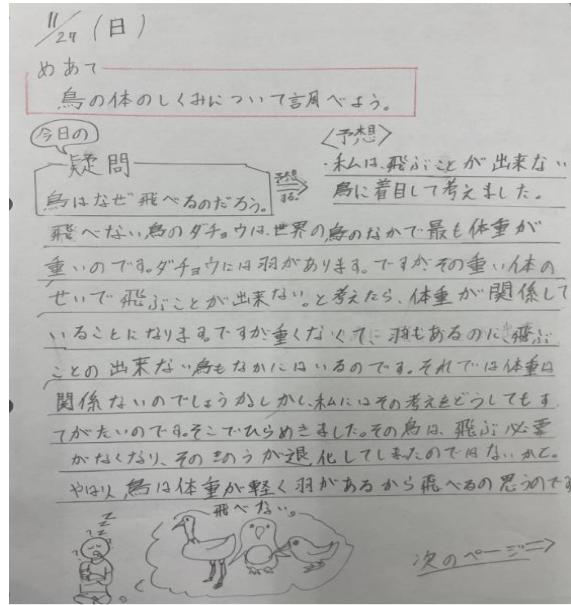 11/24(日)
めあて
鳥の体のしくみについて調べよう。
今日の
疑問
鳥はなぜ飛べるのだろう。
予想する。
〈予想〉
・私は、飛ぶことが出来ない
鳥に着目して考えました。
飛べない鳥のダチョウは、世界の鳥のなかで最も体重が
重いのです。ダチョウには羽があります。ですが、その重い体の
せいで飛ぶことが出来ない。と考えたら、体重が関係して
いることになります。ですが重くなくて、羽もあるのに、飛ぶ
ことの出来ない鳥もなかにはいるのです。それでは体重は
関係ないのでしょうか。しかし、私にはその考えをどうしてもす
てがたいのです。そこでひらめきました。その鳥は、飛ぶ必要
がなくなり、そのきのうが退化してしまたのではないかと。
やはり、鳥は体重が軽く羽があるから飛べるの思うのです
飛べない。
zzz
次のページ⇒